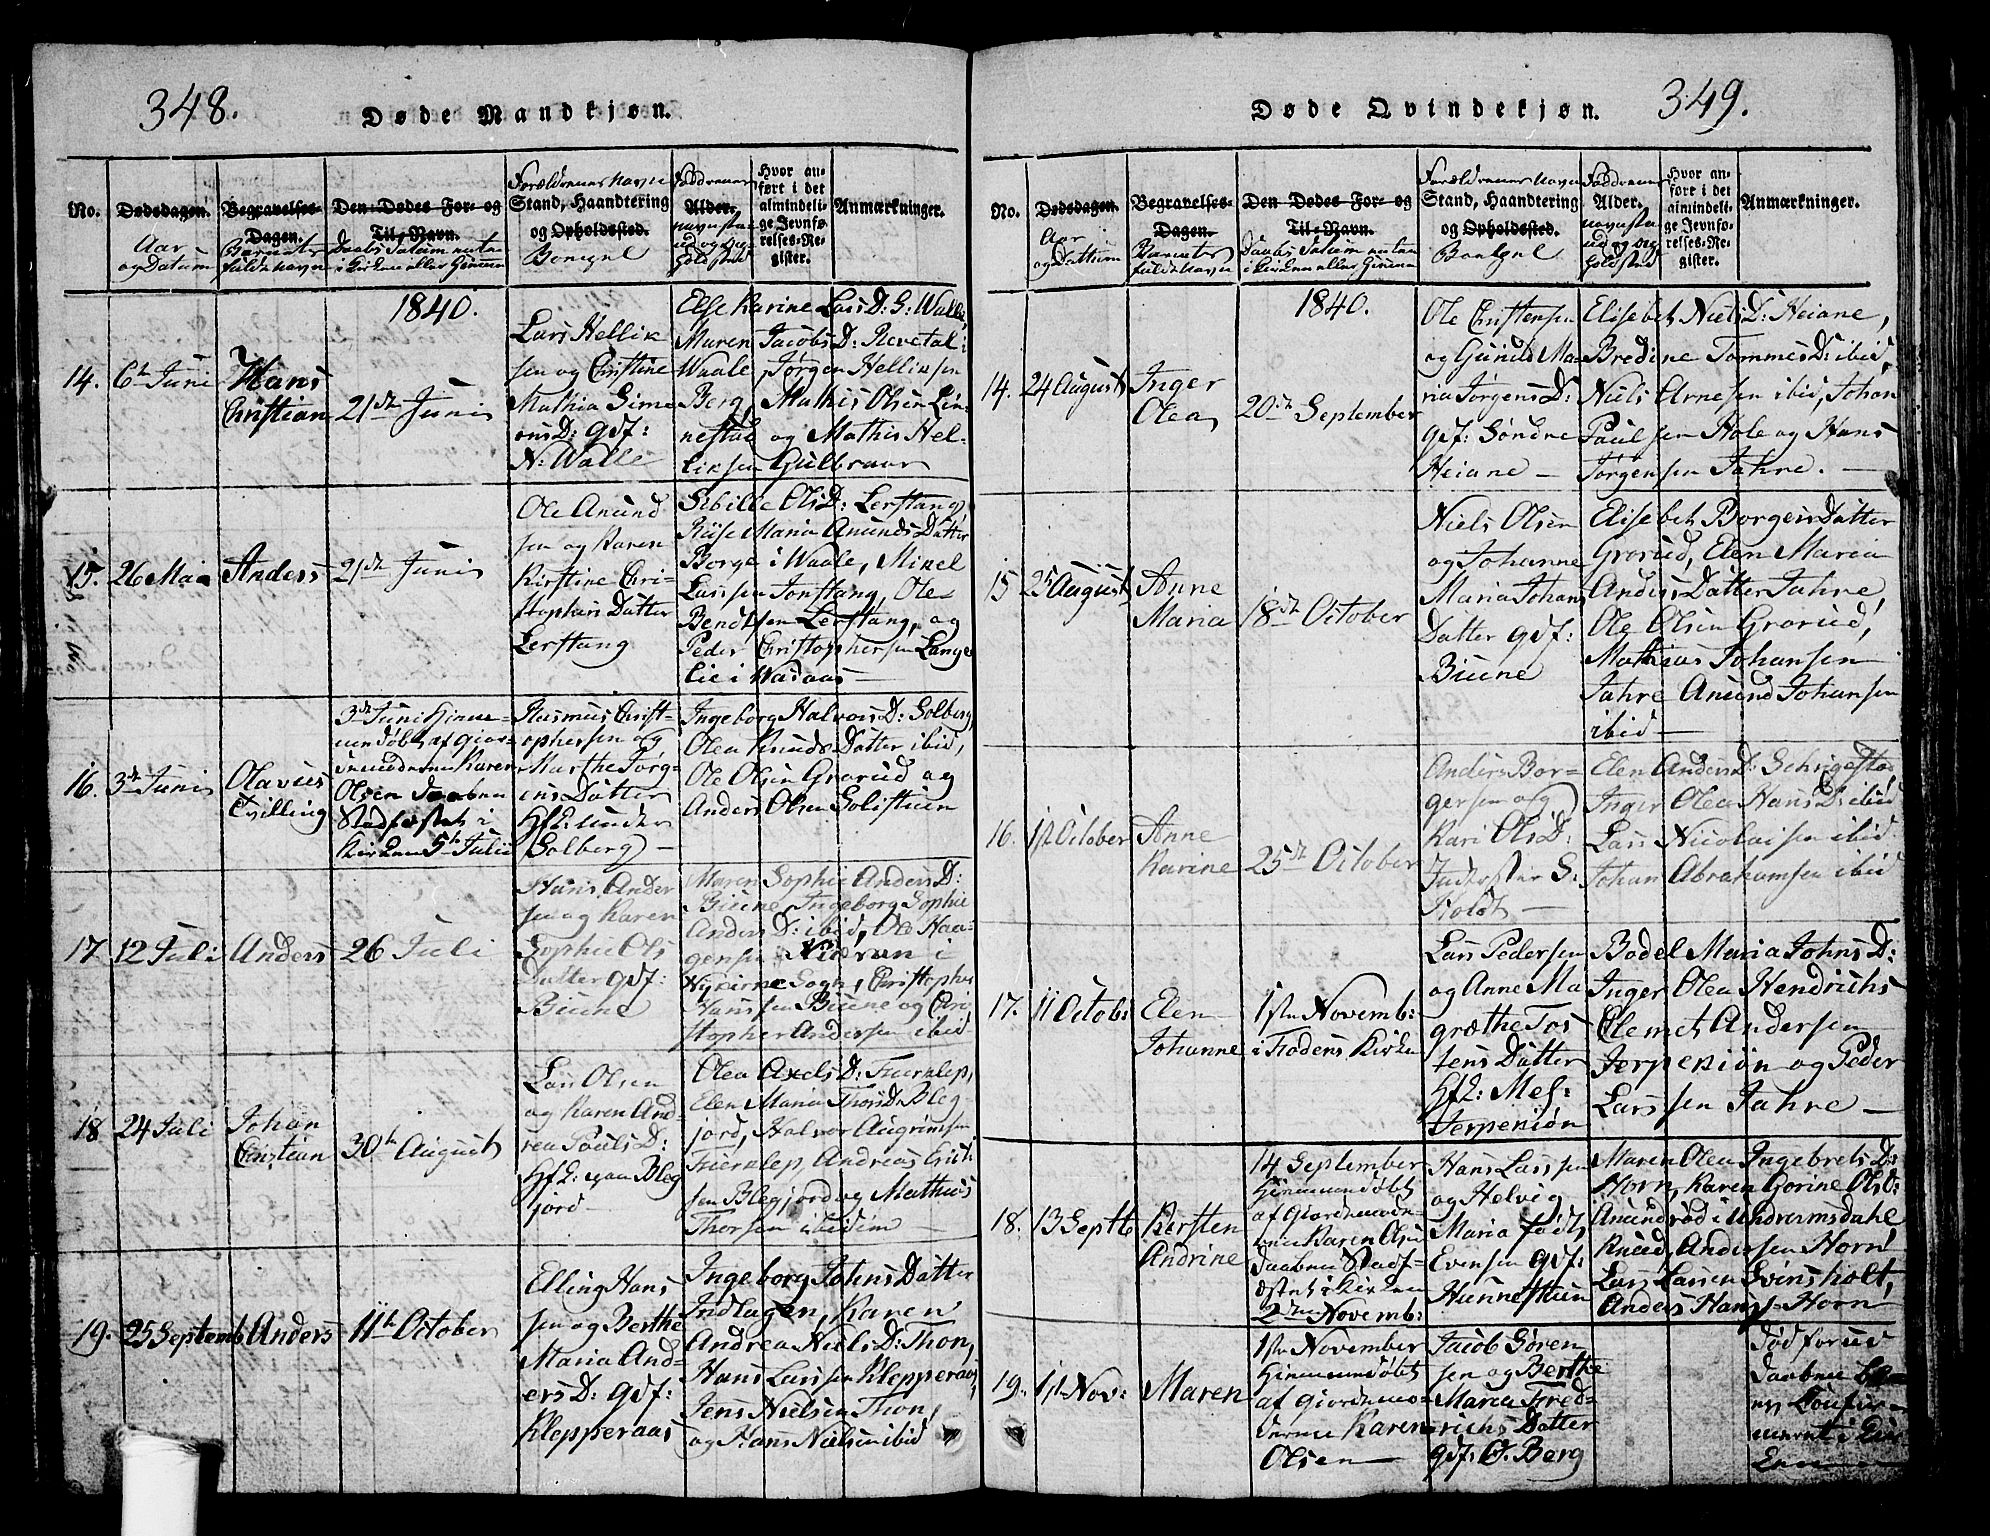 348.
Døde Mandkjøn.
No.
Dødsdagen.
Aar
og Datum
Begravelses-
Dagen.
Barnets
fulde Navn
Den Dødes For- og
Til-Navn.
Daabs Datum enten
i Kirken eller Hiemme
Forældrenes Navn
Stand, Haandtering
og Opholdssted.
Bopæl
Faddrenes
Alder.
Navn Stand
og Op-
holdsted
Hvor an-
ført i det
almindeli-
ge Jevnfø-
relses-Re-
gister.
Anmærkninger.
1840.
14.
6te Juni
Hans
Christian
21de Juni
Lars Hellik
sen og Christine
Mathia Sime
onsD: gdf:
N: Walle
Else Karine LarsD: S: Walle,
Maren JacobsD: Revetal i
Waale Jørgen Helliksen
Berg, Mathis Olsen Lin-
nestad og Mathis Hel-
liksen Gulbraar
15.
26 Mai
Anders
21de Juni
Ole Anund
sen og Karen
Kirstine Chri-
stophers Datter
Lerstang
Sibille OlsD: Lerstang,
Riise Maria Anunds Datter
Borge i Waale, Mikel
Larssen Tonstang, Ole
Bendtsen Lerstang, og
Peder Christophersen Lange
lie i Wadaas
16.
3de Juni
Olavus
Tvilling
3de Juni Hiem-
mendøbt af Gior-
demoderen Karen
Olsen Daaben
Stadfæstet i
Kirken 5te Julii
Rasmus Christ-
ophersen og
Marthe Jørg-
ens Datter
Hfd: under
Solberg
Ingeborg HalvorsD: Solberg,
Olea Knuds Datter ibid,
Ole Olsen Grorud og
Anders Olsen Solistuen
17.
12 Juli
Anders
26 Juli
Hans Ander
sen og Karen
Sophie Ols
Datter gdf:
Biune
Maren Sophie AndersD:
Biune Ingeborg Sophie
AndersD: ibid, Ole Haa-
gensen Nidren i
Nykirke Sogn, Christopher
Hanssen Biune og Chri
stopher Andersen ibid
18
24 Juli
Johan
Christian
30te August
Lars Olsen
og Karen And-
rea PoulsD:
Hfd: paa Bleg
jord
Olea AxelsD: Fueralep,
Elen Maria ThorsD: Bleg-
jord, Halvor Augrimsen
Fueralep, Andreas
sen Blegjord og Mathias
Thorsen ibidem
19.
25 Septemb
Anders
11te October
Elling Hans
sen og Berthe
Maria And-
ersD: gdf:
Klepperaas
Ingeborg Johns Datter
Indlagen, Karen
Andrea NielsD: Thon,
Hans Larssen Klepperaas,
Jens Nielsen Thon,
og Hans Nielsen ibid
349.
Døde Qvindekjøn.
No.
Dødsdagen.
Aar
og Datum
Begravelses-
Dagen.
Barnets
fulde Navn
Den Dødes For- og
Til-Navn.
Daabs Datum enten
i Kirken eller Hiemme
Forældrenes Navn
Stand, Haandtering
og Opholdssted.
Bopæl
Faddrenes
Alder.
Navn Stand
og Op-
holdsted
Hvor an-
ført i det
almindeli-
ge Jevnfø-
relses-Re-
gister.
Anmærkninger.
1840.
14.
24 August
Inger
Olea
20de September
Ole Christensen
og Gunild Ma
ria JørgensD:
gdf: Søndre
Heiane
Elisebet NielsD: Heiane,
Bredine TommesD: ibid,
Niels Arnesen ibid, Johan
Paulsen Hole og Hans
Jørgensen Jahre.
15
25 August
Anne
Maria
18de October
Niels Olsen
og Johanne
Maria Johans
Datter gdf:
Biune
Elisebet Borgers Datter
Grorud, Elen Maria
Anders Datter Jahre,
Ole Olsen Grorud,
Mathias Johansen
Jahre Anund Johansen
ibid
16.
1st October
Anne
Karine
25de October
Anders Bor-
gersen og
Kari OlsD:
Inderster S:
Holdt
Elen AndersD:
Inger Olea HansD: ibid
Lars Nicolaisen ibid
Johan Abrahamsen ibid
17.
11 Octob:
Elen
Johanne
1ste Novemb:
i Fiodens Kirke
Lars Pedersen
og Anne Ma
grethe Tos
tens Datter
Hfd: Mel:
Jerpekiøn
Bodel Maria JohnsD:
Inger Olea Hendrichs
Clemet Andersen
Jerpekiøn og Peder
Larssen Jahre
18.
13 Septb
Kersten
Andrine
14 September
Hiemmendøbt
af Giordemod-
eren Karen Olsen
Daaben Stadf-
æstet i Kirken
2den Novemb:
Hans Larssen
og Helvig
Maria født
Evensen gdf:
Hunnestuen
Maren Olea IngebretsD:
Horn, Karen Gorine OlsD:
Anundrød i Undrumsdahl
Knud Andersen Horn
Lars Larsen Svinsholt,
Anders Hanss Horn
19.
1st Nov:
Maren
1ste November
Hiemmendøbt
af Giordemo-
deren Karen
Olsen
Jacob Søren
sen og Berthe
Maria Fred-
richs Datter
gdf: Ø. Berg
Død forud
Daaben ble-
ven Confir-
meret i Kir
ken